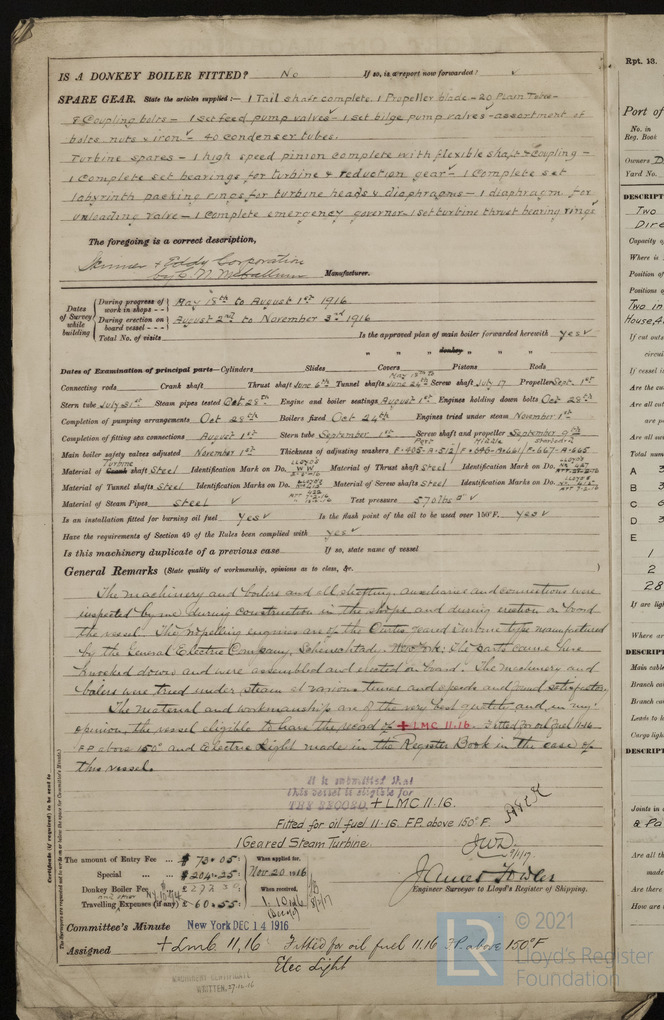 IS A DONKEY BOILER FITTED? No If so, is a report now forwarded? ✓
SPARE GEAR. State the articles supplied:— 1 Tail shaft complete 1 Propeller blade - 20 Plain Tubes -
8 Coupling bolts - 1 set feed pump valves - 1 set bilge pump valves - assortment of
bolts nuts & iron - 40 condenser tubes.
Turbine spares - 1 high speed pinion complete with flexible shaft & coupling -
1 Complete set bearings for turbine & reduction gear - 1 Complete set
labyrinth packing rings for turbine heads & diaphragms - 1 diaphragm for
unloading valve - 1 Complete emergency governor - 1 set turbine thrust bearing rings
The foregoing is a correct description,
Skinner & Eddy Corporation
by Manufacturer.
Dates of Survey while building
During progress of work in shops - - May 18th to August 1st 1916
During erection on board vessel - - - August 2nd to November 3rd 1916
Total No. of visits
Is the approved plan of main boiler forwarded herewith Yes ✓
" " " donkey " " "
Dates of Examination of principal parts—Cylinders Slides Covers Pistons Rods
Connecting rods Crank shaft Thrust shaft June 6th Tunnel shafts May 18th to June 24th Screw shaft July 17 Propeller Sept. 1st
Stern tube July 31st Steam pipes tested Oct 28th Engine and boiler seatings August 1st Engines holding down bolts Oct 28th
Completion of pumping arrangements Oct 28th Boilers fixed Oct 24th Engines tried under steam November 1st
Completion of fitting sea connections August 1st Stern tube September 1st Screw shaft and propeller September 9th
Main boiler safety valves adjusted November 1st Thickness of adjusting washers Port Middle Starbd.
Material of Crank Turbine shaft Steel Identification Mark on Do. Material of Thrust shaft Steel Identification Mark on Do.
Material of Tunnel shafts Steel Identification Marks on Do. Material of Screw shafts Steel Identification Marks on Do.
Material of Steam Pipes Steel ✓ Test pressure 570 lbs ✓
Is an installation fitted for burning oil fuel Yes ✓ Is the flash point of the oil to be used over 150°F. Yes ✓
Have the requirements of Section 49 of the Rules been complied with Yes ✓
Is this machinery duplicate of a previous case If so, state name of vessel
General Remarks (State quality of workmanship, opinions as to class, &c. )
The machinery and boilers and all shafting, auxiliaries and connections were
inspected by me during construction in the shops and during erection on board
the vessel. The propelling engines are of the Curtis geared turbine type manufactured
by the General Electric Company, Schenectady, New York. The parts came here
knocked down and were assembled and erected on board. The machinery and
boilers were tried under steam at various times and speeds and found satisfactory.
The material and workmanship are of the very best quality and in my
opinion, the vessel eligible to have the record of + LMC 11.16. Fitted for oil fuel 11-16
F.P. above 150° and Electric Light made in the Register Book in the case of
this vessel.
It is submitted that
this vessel is eligible for
THE RECORD. + LMC 11-16.
Fitted for oil fuel 11-16. F.P. above 150°F.
1 Geared Steam Turbine.
JWD
The amount of Entry Fee ... $ 73.05: When applied for,
Special ... ... $ 204.25: Nov 20 1916
Donkey Boiler Fee ... When received,
Travelling Expenses (if any) $ 60.55:
James Fowler
Engineer Surveyor to Lloyd's Register of Shipping.
Committee's Minute New York DEC 14 1916
Assigned + Lmc 11,16 Fitted for oil fuel 11.16 F.P. above 150°F
Elec Light
MACHINERY CERTIFICATE
WRITTEN.
Certificate (if required) to be sent to
Rpt. 13.
Port of
No. in
Reg. Book
Owners
Yard No.
DESCRIPT
Two
Dire
Capacity o
Where is
Position of
Positions o
Two in
House A
If cut outs
circu
If vessel i
Are the cu
Are all cut
are p
Are all sw
Total num
A 3
B
C
D 3
E
1
2
28
If are lig
Where ar
DESCRIPT
Main cable
Branch ca
Branch ca
Leads to l
Cargo light
DESCRIPT
Joints in c
& Pa
Are all th
made
Are there
How are
© 2021
LR
Lloyd's Register
Foundation